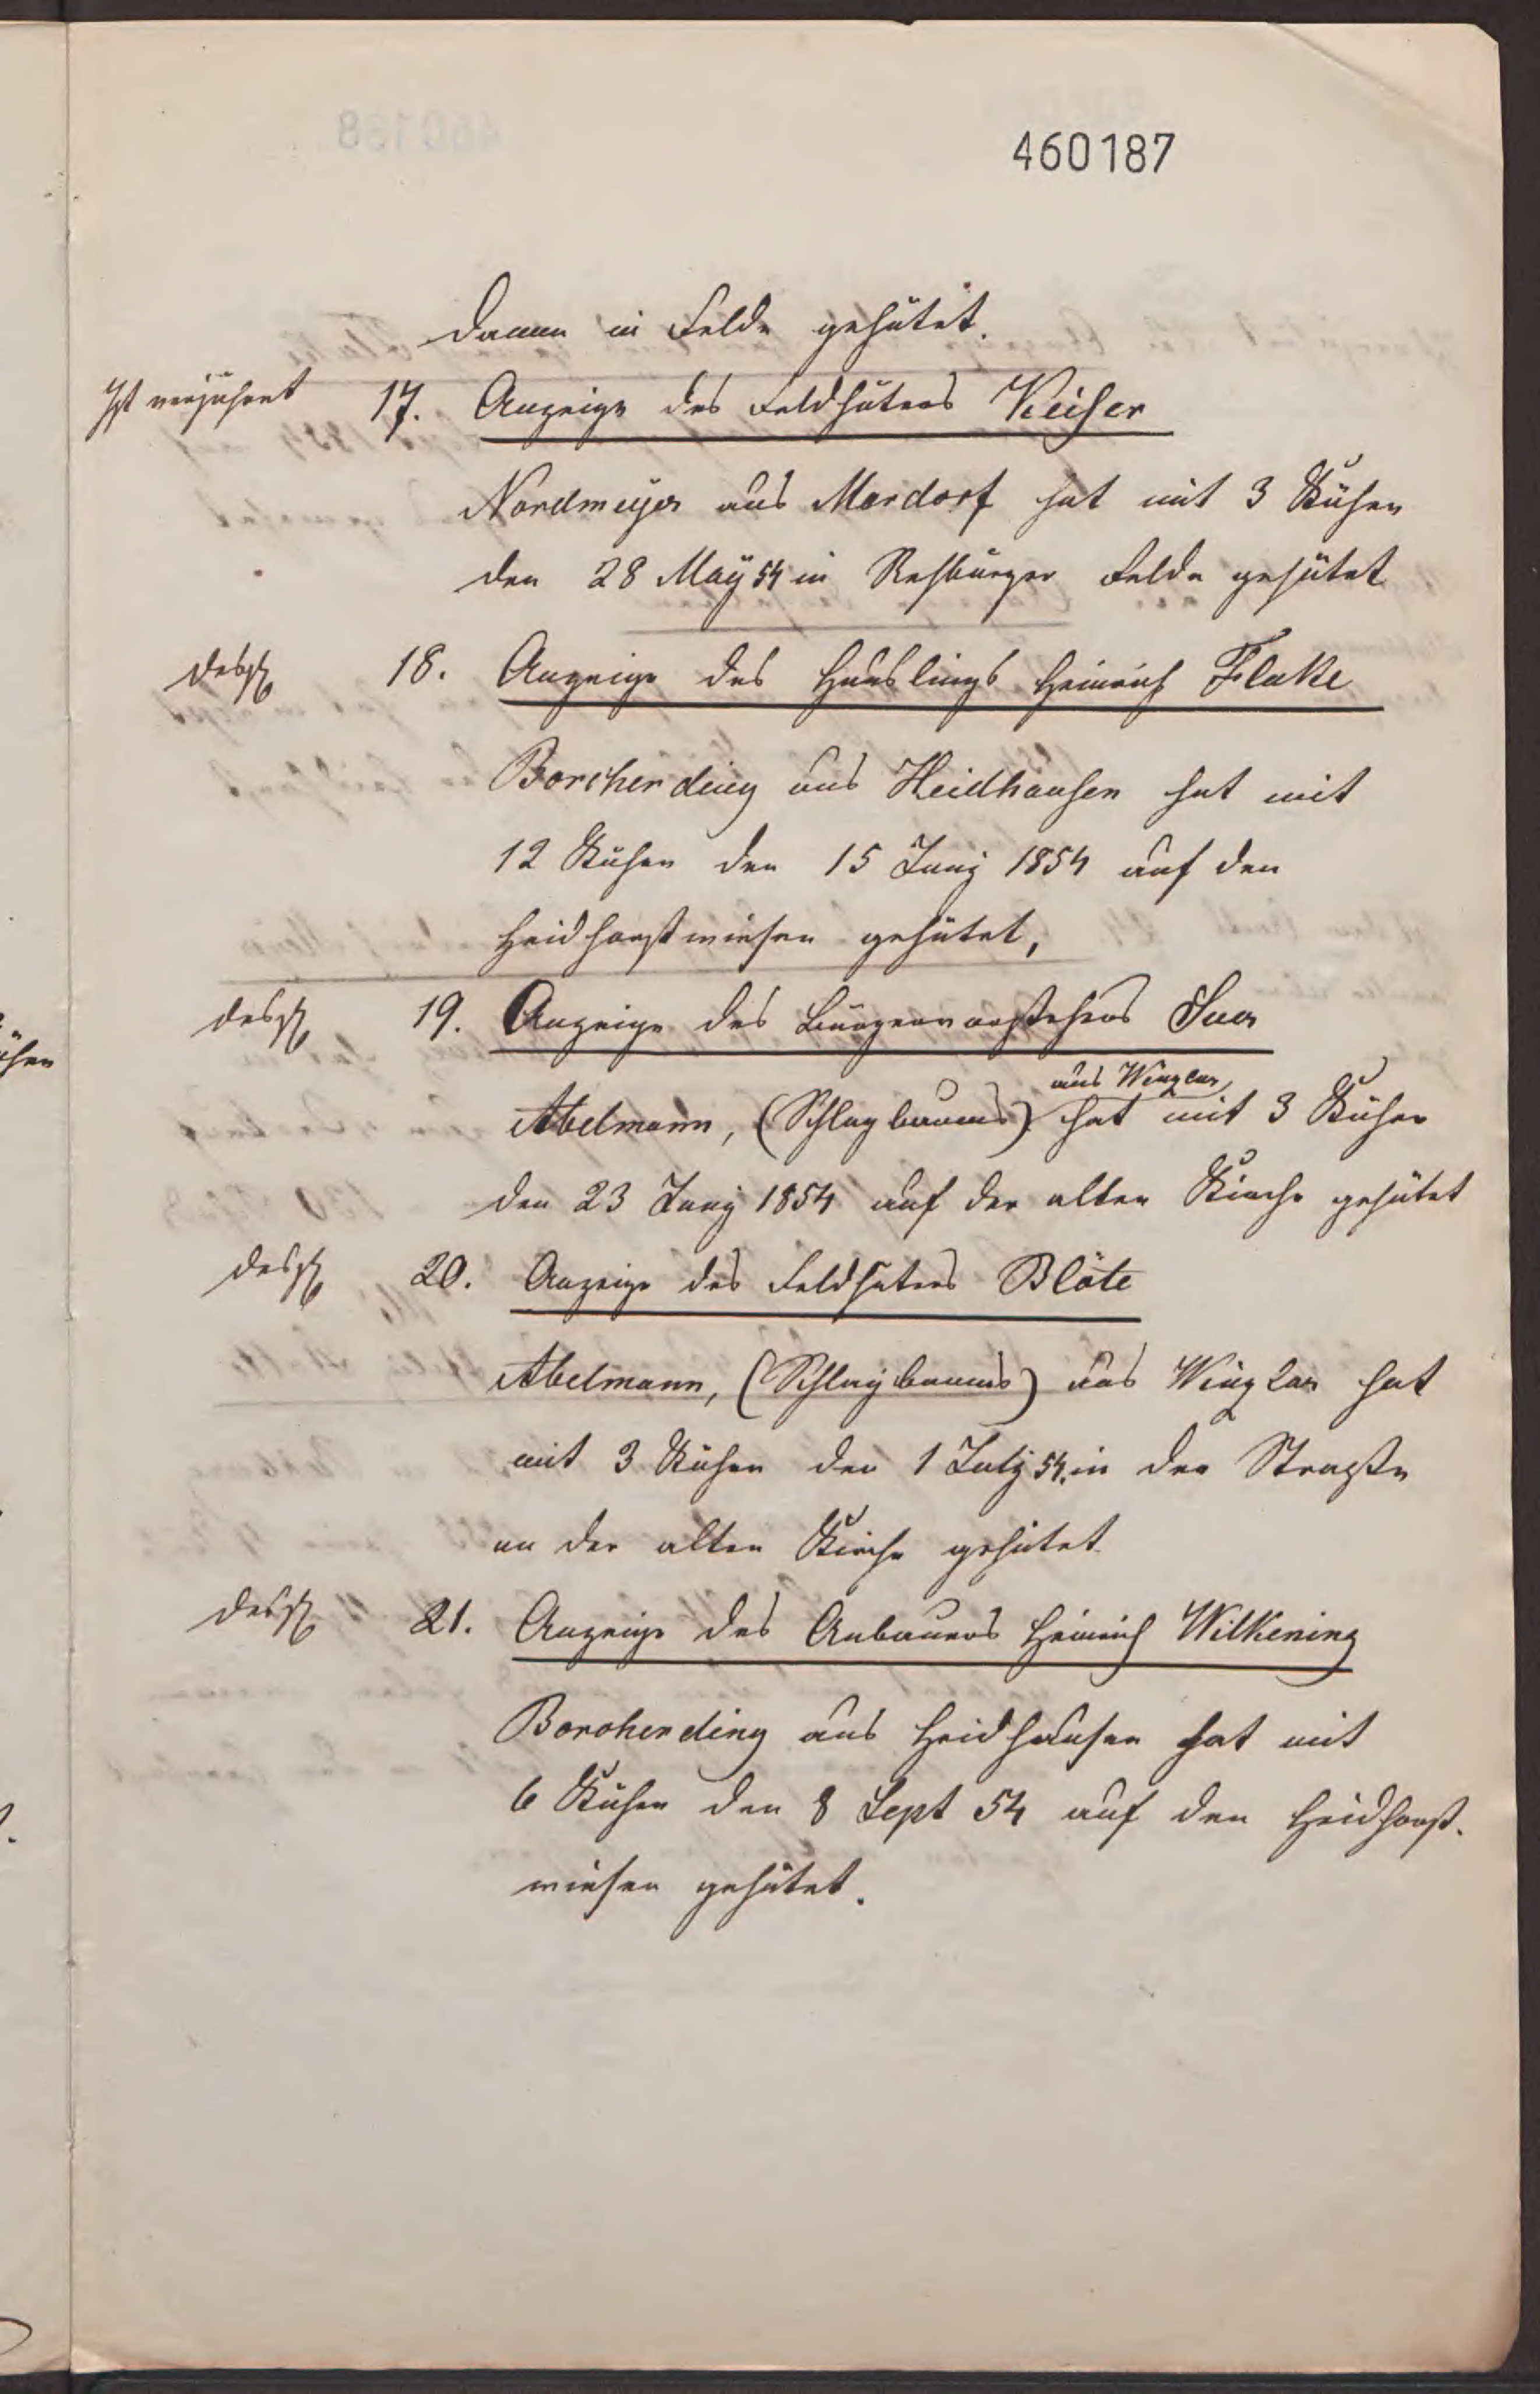 460187
Damm in Felde gehütet.
Ist verjährt 17. Anzeige des Feldhüters Keiser
Nordmeyer aus Mardorf hat mit 3 Kühen
den 28 May 54 in Rehburger Felde gehütet
desgl 18. Anzeige des Häuslings Heinrich Flake
Borcherding aus Heidhausen hat mit
12 Kühen den 15 Juny 1854 auf den
Heidhorstwiesen gehütet,
desgl 19. Anzeige des Bürgervorstehers Suer
aus Winzlar
Abelmann, (Schlagbaums) hat mit 3 Kühen
den 23 Juny 1854 auf der alten Kirche gehütet
desgl 20. Anzeige des Feldhüters Blöte
Abelmann, (Schlagbaums) aus Winzlar hat
mit 3 Kühen den 1 July 54. in der Straße
an der alten Kirche gehütet
desgl 21. Anzeige des Anbauers Heinrich Wilkening
Borcherding aus Heidhausen hat mit
6 Kühen den 8 Sept 54 auf den Heidhorst-
wiesen gehütet.